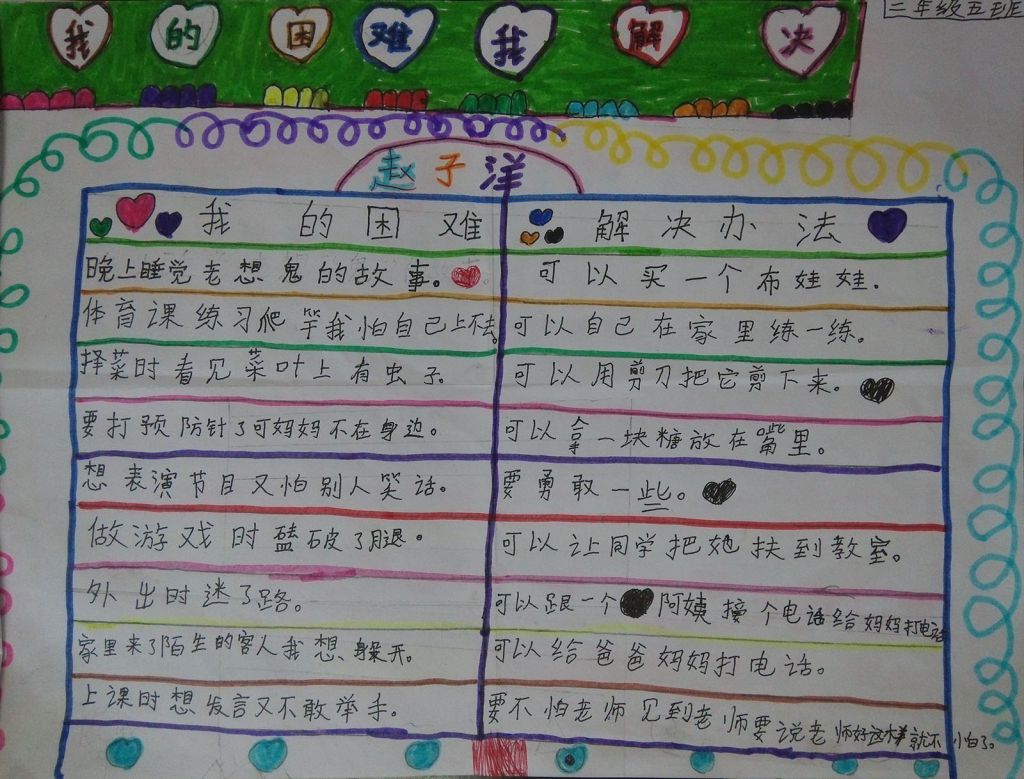 二年级五班
我的困难我解决
赵子洋
我的困难 解决办法
晚上睡觉老想鬼的故事。 可以买一个布娃娃.
体育课练习爬竿我怕自己上不去 可以自己在家里练一练。
择菜时看见菜叶上有虫子. 可以用剪刀把它剪下来。
要打预防针了可妈妈不在身边。 可以拿一块糖放在嘴里。
想表演节目又怕别人笑话. 要勇敢一些。
做游戏时磕破了腿。 可以让同学把她扶到教室。
外出时迷了路。 可以跟一个阿姨接个电话给妈妈打电话
家里来了陌生的客人我想躲开。 可以给爸爸妈妈打电话。
上课时想发言又不敢举手。 要不怕老师见到老师要说老师好这样就不小白了。